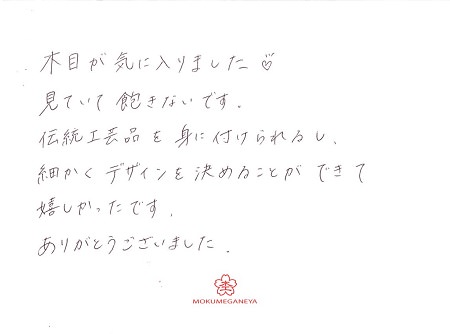 木目が気に入りました♡
見ていて飽きないです.
伝統工芸品を身に付けられるし、
細かくデザインを決めることができて
嬉しかったです.
ありがとうございました.
杢
MOKUMEGANEYA